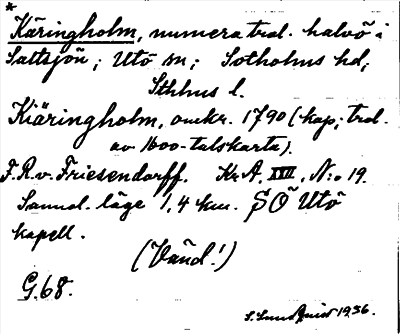 *
Käringholm, numera trol. halvö i
Saltsjön; Utö sn; Sotholms hd;
Sthlms l.
Kiäringholm, omkr. 1790 (kop; trol.
av 1600-talskarta).
F.R.v. Friesendorff. Kr.A. XVII, N:o 19.
Sannol. läge 1,4 km. SÖ Utö
kapell.
(Vänd!)
G.68.
S. Lundquist 1936.